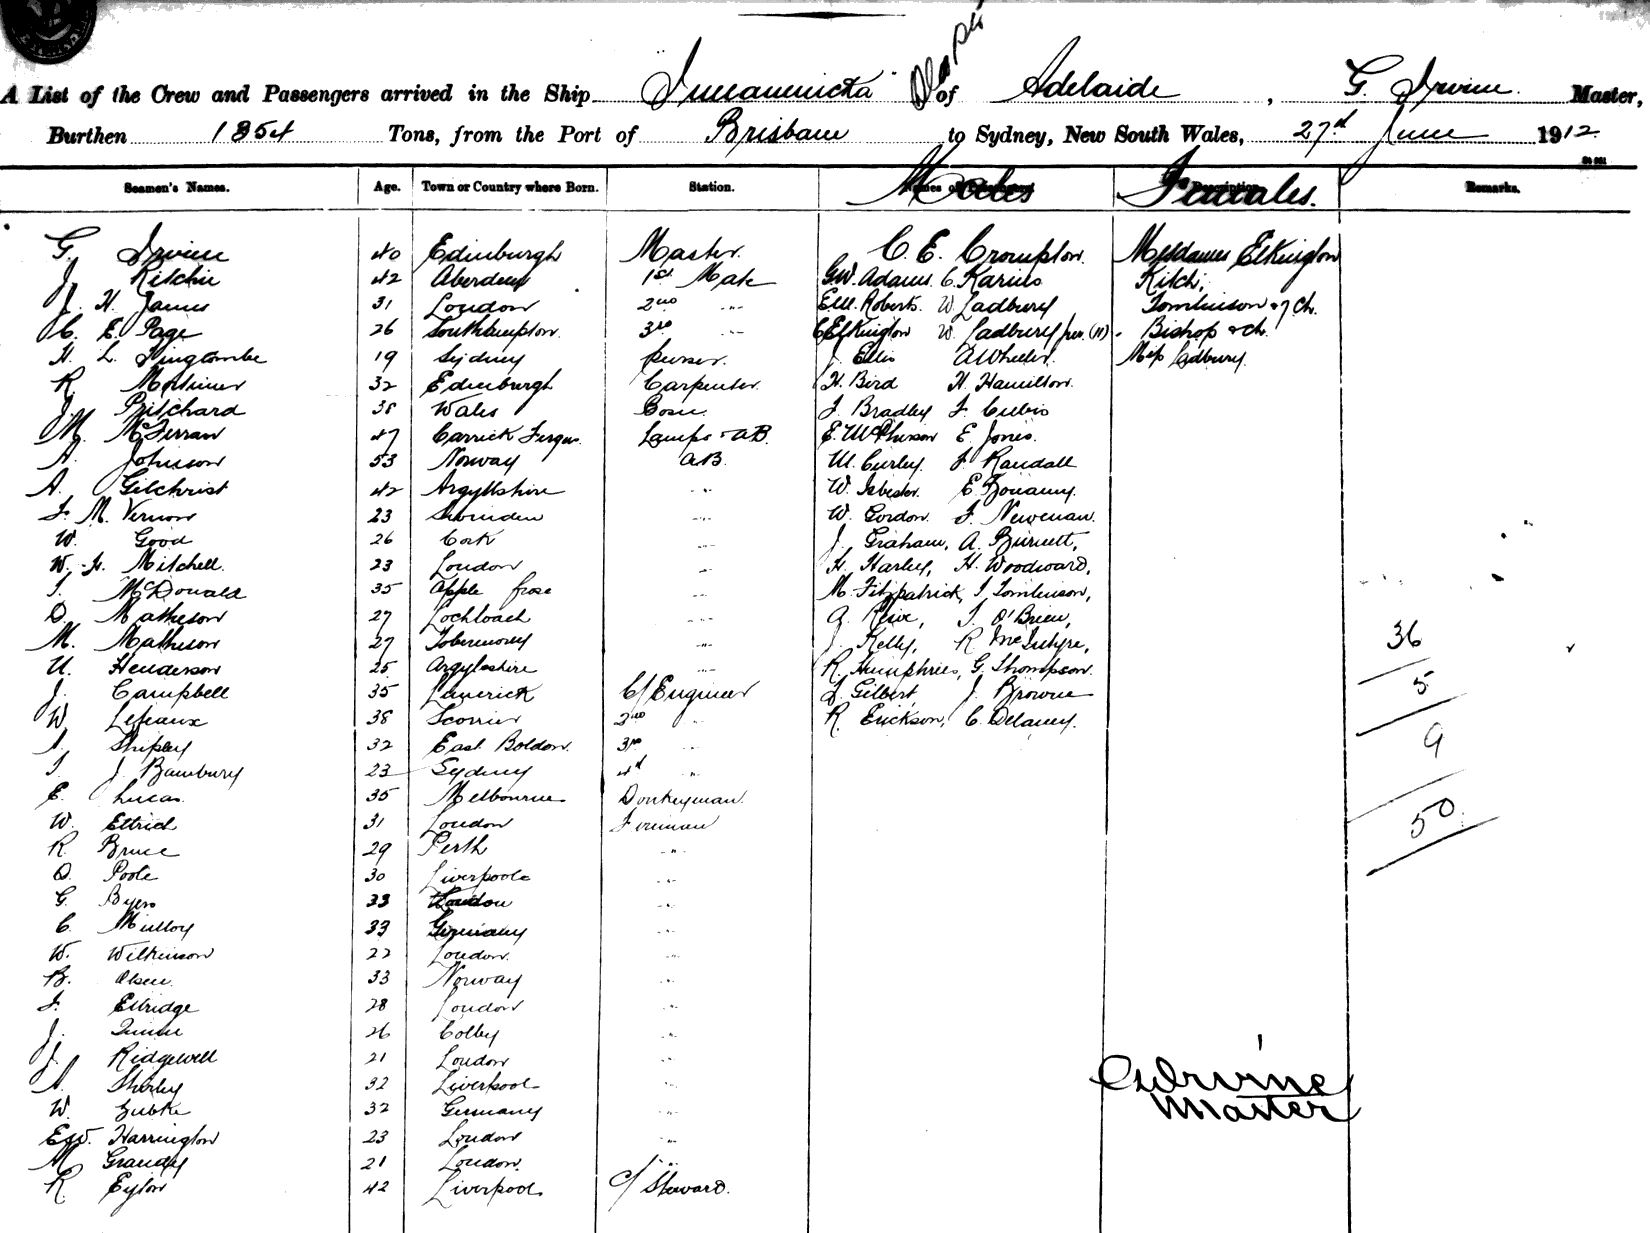 A List of the Crew and Passengers arrived in the Ship Innamincka of Adelaide, G. Irvine Master,
Burthen 1854 Tons, from the Port of Brisbane to Sydney, New South Wales, 27th June 1912
Seamen's Names. Age. Town or Country where Born. Station. Males Females. Remarks.
G. Irvine 40 Edinburgh Master. C. E. Crompton. Mesdames Elkington
J. Ritchie 42 Aberdeen 1st Mate G.W. Adams. C. Karius Kitch,
J. H. James 31 London 2nd " E.W. Roberts. W. Ladbury Tomlinson & 7 Ch.
C. E. Page 26 Southampton. 3rd " C Elkington W. Ladbury jnr. (11) Bishop & ch.
H. L. 19 Sydney purser. J. Ellis A Wheeler. Miss Ladbury.
R. Mortimer 32 Edinburgh Carpenter. H. Bird H. Hamilton.
J. Pritchard 38 Wales Bosn. J. Bradley F. Cubis
M. McFerran 47 Carrick Fergus. Lamps & AB. E. McPherson E. Jones.
A. Johnson 53 Norway AB. W. Curley. F. Randall
A. Gilchrist 42 Argyllshire " W. Isbester. E.
F. M. Vernon 23 " W. Gordon. F. Newenan.
W. Good 26 Cork " J. Graham, A. Burnett,
W. F. Mitchell. 23 London " H. Harley, H. Woodward,
J. McDonald 35 Apple " M. Fitzpatrick, J. Tomlinson,
D. Matheson 27 " J. O'Brien,
M. Matheson 27 Tobermory " J. Kelly, R McIntyre,
Henderson 25 Argyleshire " R. Humphries, G. Thompson.
J. Campbell 35 Limerick C/Engineer L. Gilbert, J. Browne
W. Lefeaux 38 Scorrier 2nd " R. Erickson, C. Delaney.
A. Shipley 32 East Boldon. 3rd "
J. Banbury 23 Sydney 4th "
E. Lucas. 35 Melbourne Donkeyman.
W. Ettrich 31 London Fireman
R. Bruce 29 Perth "
O. Poole 30 Liverpool "
G. Byers 33 London "
C. Mulloy 33 Germany "
W. Wilkinson 22 London. "
B. Olsen. 33 Norway "
F. Elbridge 28 London "
J. Quinn 26 Colby "
J. Ridgewell 21 London "
A. Shirley 32 Liverpool "
W. Zubke 32 Germany "
E.W. Harrington 23 London "
M Grandy 21 London. "
R. Eylon 42 Liverpool C/ Steward.
36
5
9
50
G Irvine
Master